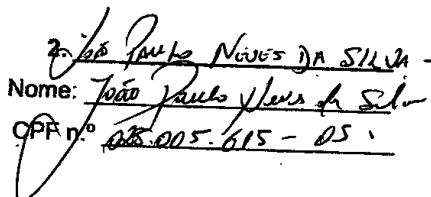 2. João Paulo Neves DA SILVA -
Nome: João Paulo Neves da Silva
CPF n.º 025.005.615 - 05